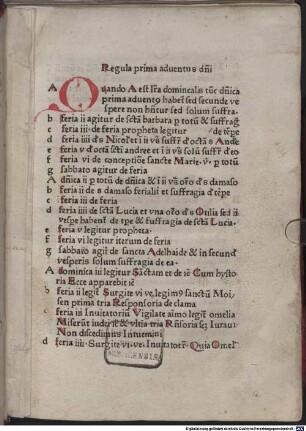 Regula prima aduentus dñi
A Quando A est lr̃a dominicalis tũc dñica
prima aduentꝰ habet sed secunde ve
spere non hñtur sed solum suffra.
b feria ii agitur de sctã barbara p totũ & suffrag̃
c feria iii de feria propheta legitur de tẽpe
d feria iiii d's Nicolei i ii vs suffr̃ d'octã s Andr
e feria v d'octã sctĩ andree et i ii vs solũ suffr̃ d' eo
f feria vi de conceptiõe sancte Marie v p totũ
g sabbato agitur de feria
A dñica ii p totũ de dñica & i ii vs or̃o d's damaso
b feria ii de s damaso feriali et suffragia d' tẽpe
c feria iii de feria
d feria iiii de sctã Lucia et vna or̃o d's Otilie sed ii
vespe habent de tpe & suffragia de sctã Lucia
e feria v legitur propheta
f feria vi legitur iterum de feria
g sabbato agit de sancta Adelhaide & in secund
vesperis solum suffragia de ea
A dominica iii legitur Sãctam et de ie Cum hysto
ria Ecce apparebit ie
b feria ii legit Surgite vi ve. legim9 sanctũ Moi
sen prima tria Responsoria de clama
c feria iii Inuitatoriũ Vigilate aĩmo legit omelia
Miserũt iudei ie & vltia tria Rñsoria sc Iuraui
Non discedimus Intuemini
d feria iiii Surgite vi ve. Inuitatoriũ Quia Omel